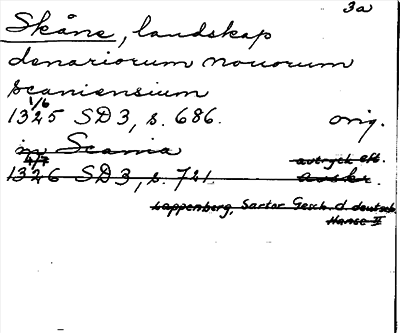 3a
Skåne, landskap
denariorum nouorum
scaniensium
1/6
1325 SD3, s. 686. orig.
in Scania
4/7 avtryck eft.
1326 SD3, s. 721 avskr.
Lappenberg, Sartor Gesch. d. deutsch.
Hanse II